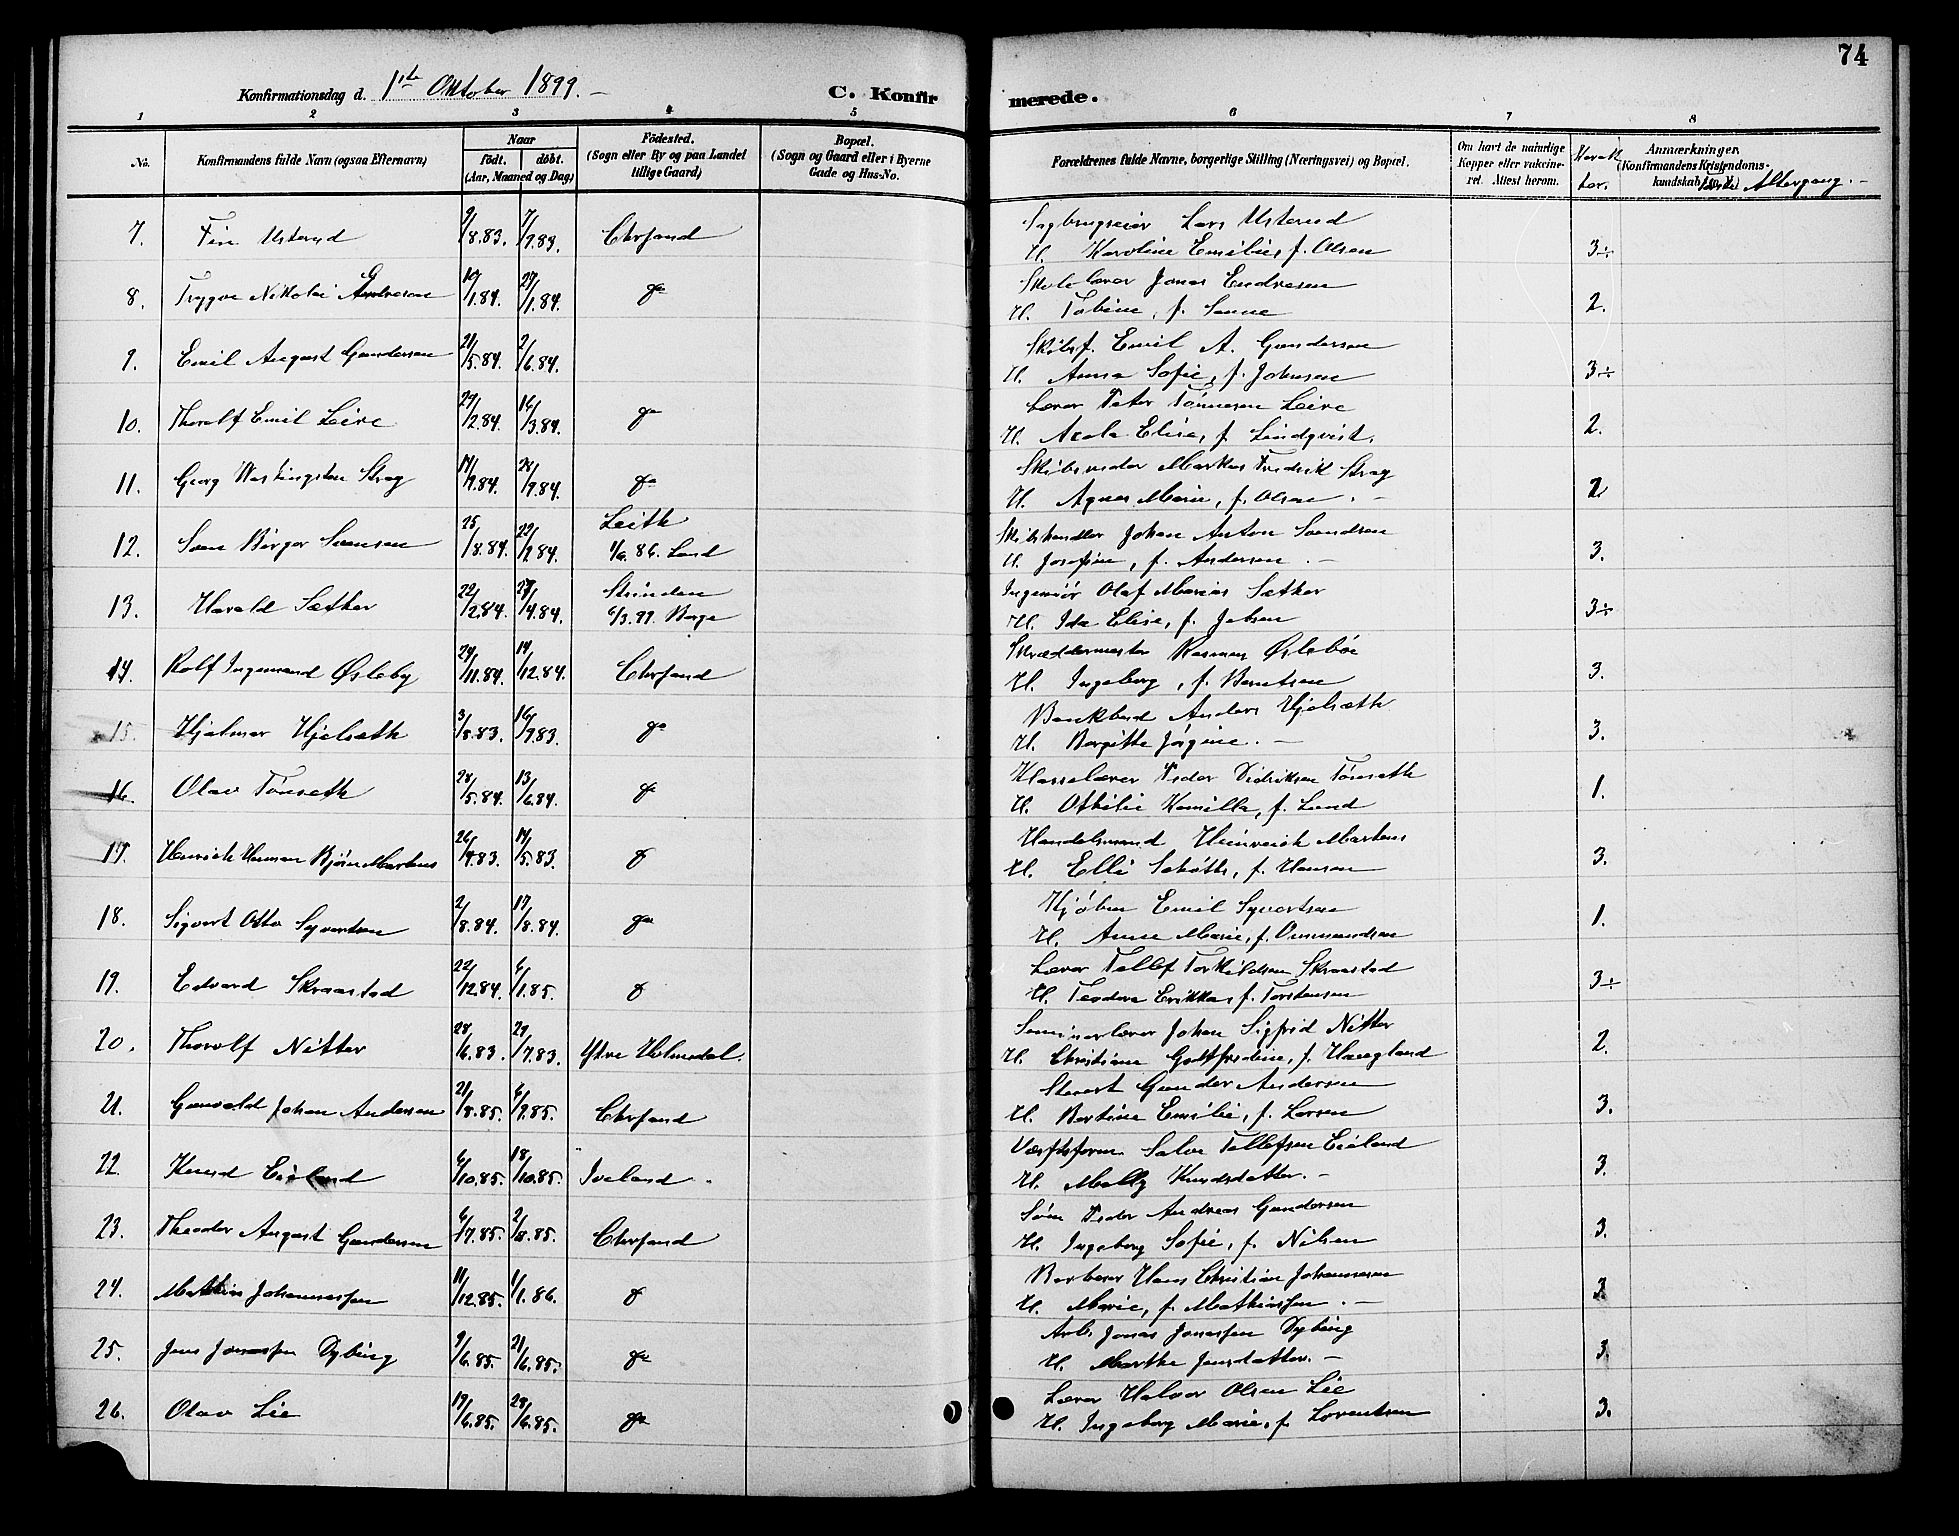 74
Konfirmationsdag d. 1ste Oktober 1899. –
C. Konfirmerede.
1 2 3 4 5 6 7 8
No.
Konfirmandens fulde Navn (ogsaa Efternavn)
Naar
født. døbt.
(Aar, Maaned og Dag)
Fødested.
(Sogn eller By og paa Landet
tillige Gaard)
Bopæl.
(Sogn og Gaard eller i Byerne
Gade og Hus-No.
Forældrenes fulde Navne, borgerlige Stilling (Næringsvei) og Bopæl.
Om havt de naturlige
Kopper eller vakcine-
ret. Attest herom.
Karak
ter.
Anmærkninger.
(Konfirmandens Kristendoms-
kundskab o. s. v.) Altergang. –
7. Finn Usterud 9/8.83. 7/9.83. Chrsand Sagbrugseier Lars Usterud
H. Karoline Emilie, f. Olsen 3÷
8. Trygve Nikolai Endresen 19/1.84. 27/1.84. do Skolelærer Jonas Endresen
H. Tobine, f. Sanne 2.
9. Emil August Gundersen 21/5.84. 2/6.84. Skibsf. Emil A. Gundersen
H. Anna Sofie, f. Johnsen 3÷
10. Thoralf Emil Leire 29/2.84. 16/3.84. do Lærer Peter Tønnesen Leire
H. Elise, f. Lindqvist. 2.
11. Georg Washington Stray 14/9.84. 28/9.84. do Skibsreder Markus Fredrik Stray
H. Agnes Marie, f. Olsen. – 2
12. Sven Birger Svensen 25/8.84. 22/9.84. Leith
1/6.86. Lund Skibshandler Johan Anton Svendsen
H. Josefine, f. Andersen. – 3.
13. Harald Sæther 22/2.84. 27/4.84. Strinden
6/3.99. Borge Ingeniør Olaf Marius Sæther
H. Ida Elise, f. Jebsen 3÷
14. Rolf Ingemund Øsleby 29/11.84. 14/12.84. Chrsand Skræddermester Rasmus Øslebøe
H. Ingeborg, f. Berntsen 3.
15. Hjalmar Hjelseth 3/8.83. 16/9.83. do Bankbud Anders Hjelseth
H. Bergitte Jørgine. – 3.
16. Olav Tønseth 28/5.84. 13/6.84. do Klasselærer Peder Didriksen Tønseth
H. Othilie Kamilla, f. Lund 1.
17. Henrich Herman Bjørn Martens 26/4.83. 14/5.83. do Handelsmand Heinreich Martens
H. Elli, f. Hansen 3.
18. Sigvart Otto Syvertsen 2/8.84. 17/8.84. do Emil Syvertsen
H. Anne Marie, f. Ommundsen 1.
19. Edvard Skraastad 22/12.84. 6/1.85. do Lærer Tellef Torkildsen Skraastad
H. Teodora Erikka, f. Torstensen 3÷
20. Thorolf Nitter 28/6.83. 29/7.83. Ytre Holmedal. Seminarlærer Johan Sigfrid Nitter
H. Christiane Gotfredine, f. Haugland 2.
21. Gunvald Johan Andersen 21/8.85. 6/9.85. Chrsand Stuert Gunder Andersen
H. Bertine Emilie, f. Larsen 3.
22. Knud Eieland 6/10.85. 18/10.85. Iveland Værftsform. Salve Tellefsen Eieland
H. Molly Knudsdatter. – 3.
23. Theodor August Gundersen 6/7.85. 2/8.85. Chrsand Søm. Peder Andreas Gundersen
H. Ingeborg Sofie, f. Nilsen 3.
24. Mathias Johannesen 11/12.85. 1/1.86. do Barberer Hans Christian Johannesen
H. Marie, f. Mathiassen. – 3
25. Jens Jonassen Dybing 9/6.85. 21/6.85. do Arb. Jonas Jonassen Dybing
H. Marthe Jensdatter. – 3.
26. Olav Lie 19/6.85. 28/6.85. do Lærer Halvor Olsen Lie
H. Ingeborg Marie, f. Lorentsen 3.